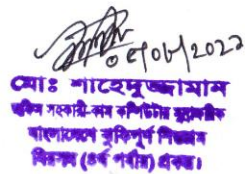 ০৫/০৮/২০২১
মোঃ শাহেদুজ্জামান
অফিস সহকারী-কাম কম্পিউটার মুদ্রাক্ষরিক
বাংলাদেশে ঝুঁকিপূর্ণ শিশুশ্রম
নিরসন (৪র্থ পর্যায়) প্রকল্প।